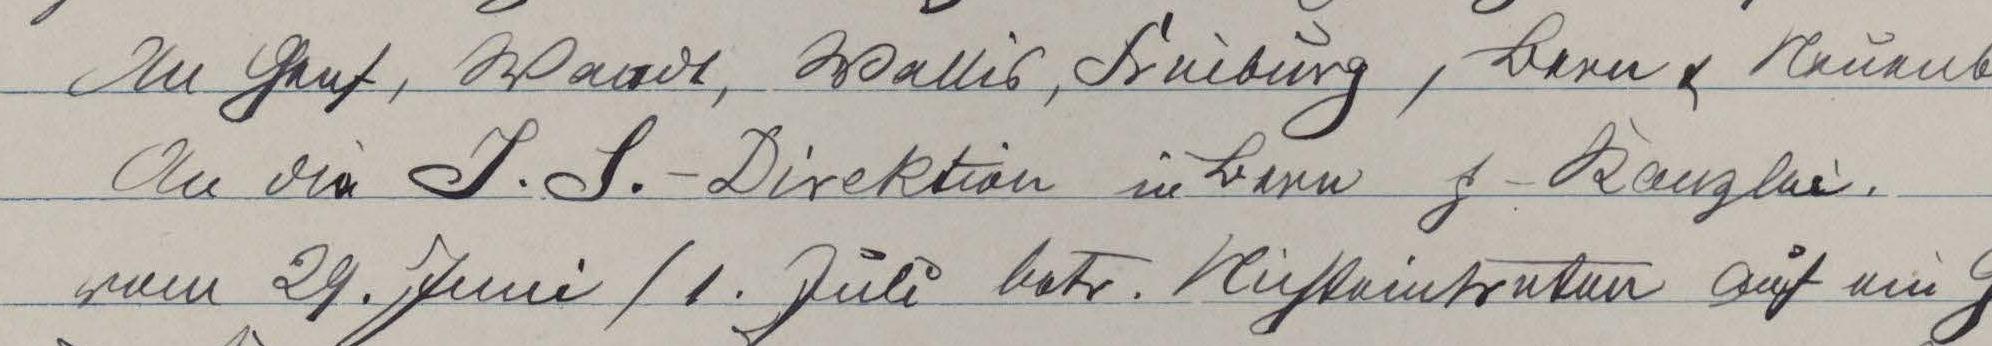 An Genf, Waadt, Wallis, Freiburg, Bern & Neuenb
An die J. S.-Direktion in Bern z - Kanzlei.
vom 29. Juni / 1. Juli betr. Nichteintreten auf ein G